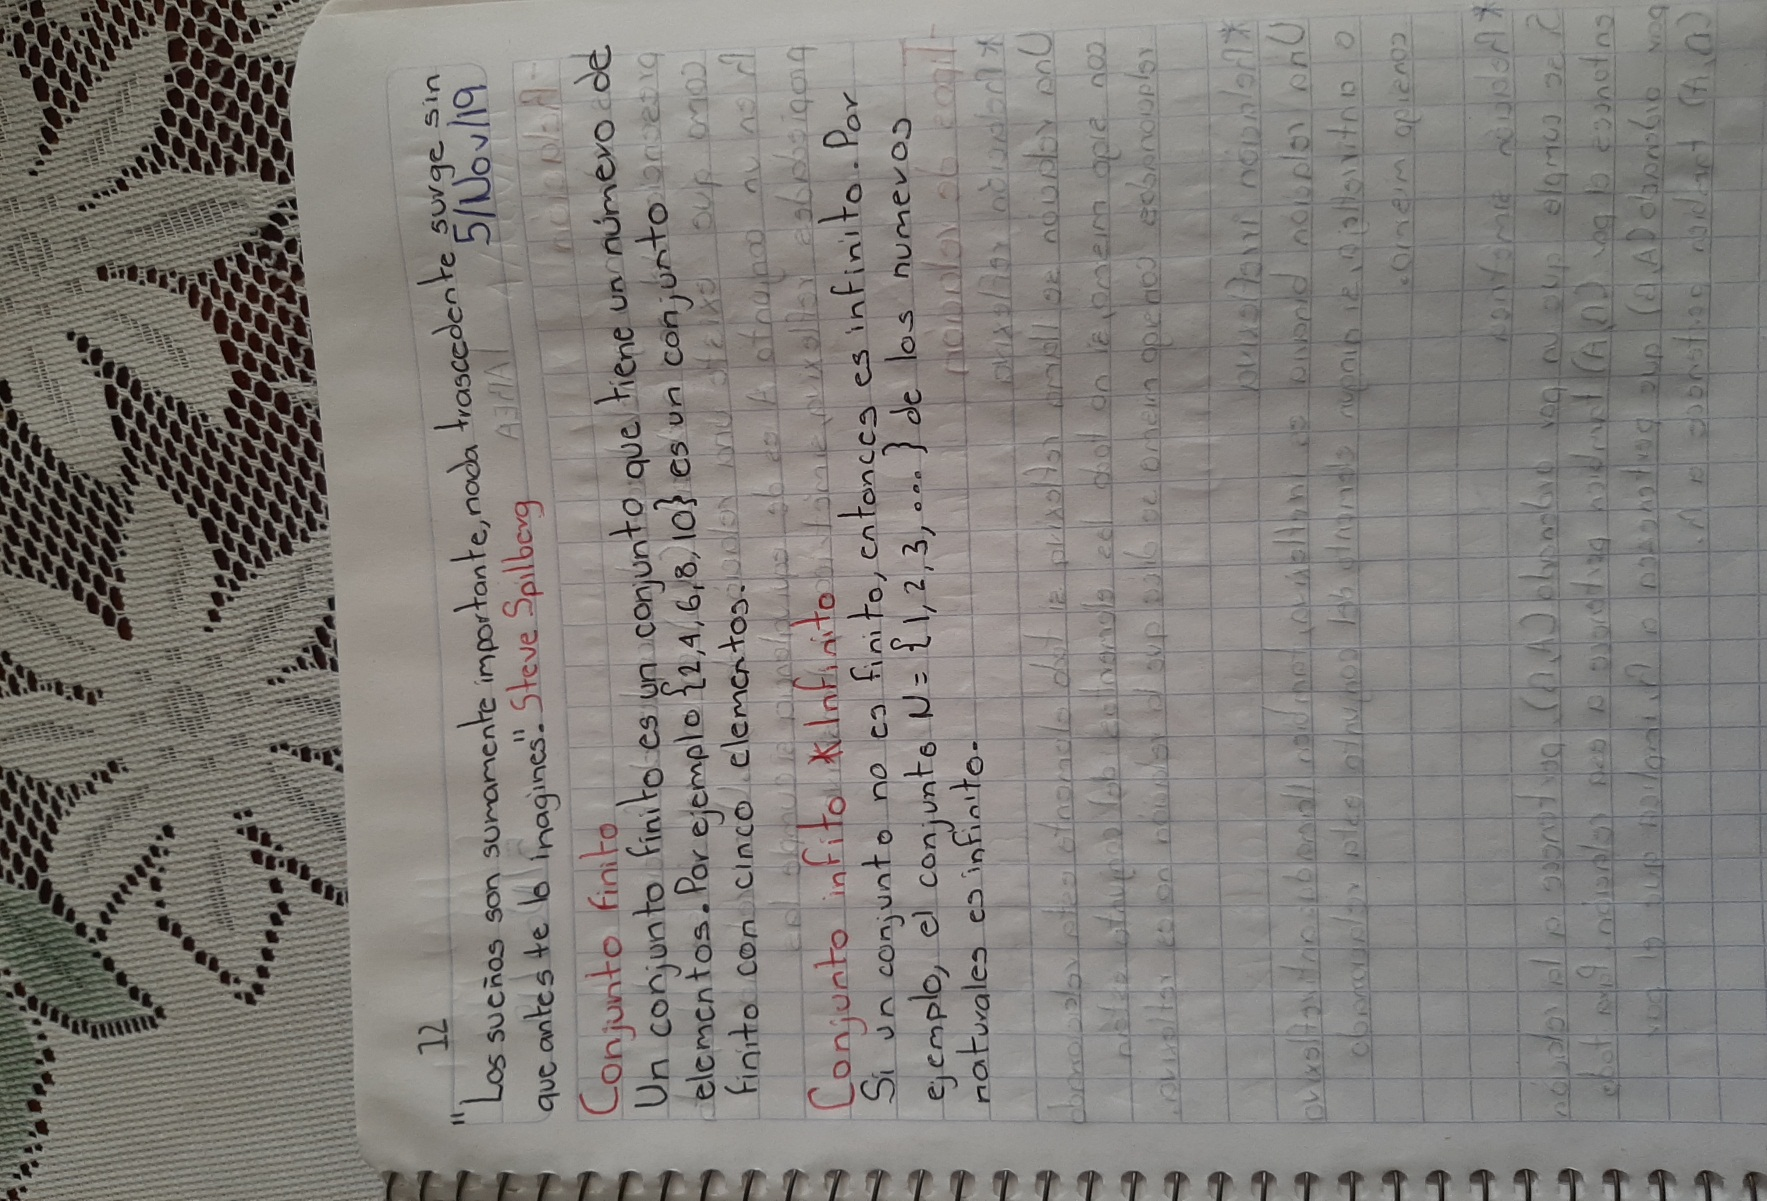 12
"Los sueños son sumamente importante, nada trascedente surge sin
5/Nov/19
que antes te lo imagines". Steve Spilberg
Conjunto finito
Un conjunto finito es un conjunto que tiene un número de
elementos. Por ejemplo {2,4,6,8,10} es un conjunto
finito con cinco elementos.
Conjunto infito *Infinito
Si un conjunto no es finito, entonces es infinito. Por
ejemplo, el conjunto N = {1,2,3,....} de los numeros
naturales es infinito.